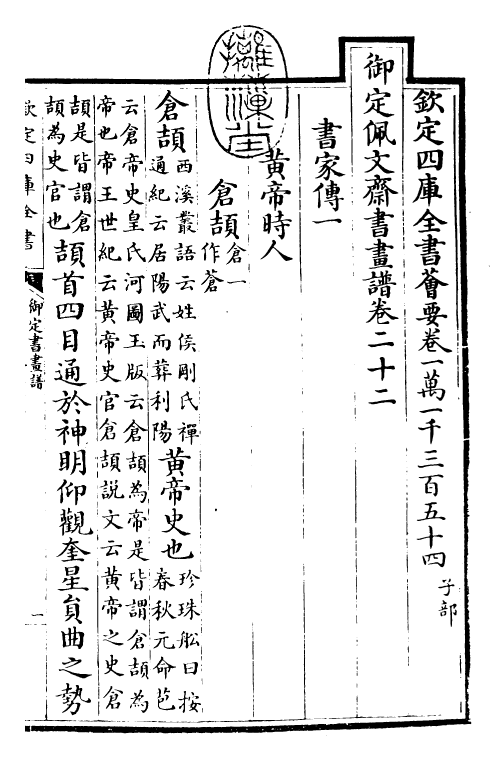 欽定四庫全書薈要卷一萬一千三百五十四 子部
御定佩文齋書畫譜卷二十二
書家傳一
黃帝時人
倉頡倉一作蒼
倉頡西溪叢語云姓侯剛氏禪通紀云居陽武而葬利陽黃帝史也珍珠船曰按春秋元命苞
云倉帝史皇氏河圖玉版云倉頡為帝是皆謂倉頡為
帝也帝王世紀云黃帝史官倉頡說文云黃帝之史倉
頡是皆謂倉頡為史官也頡首四目通於神明仰觀奎星負曲之勢
欽定四庫全書
御定書畫譜
一